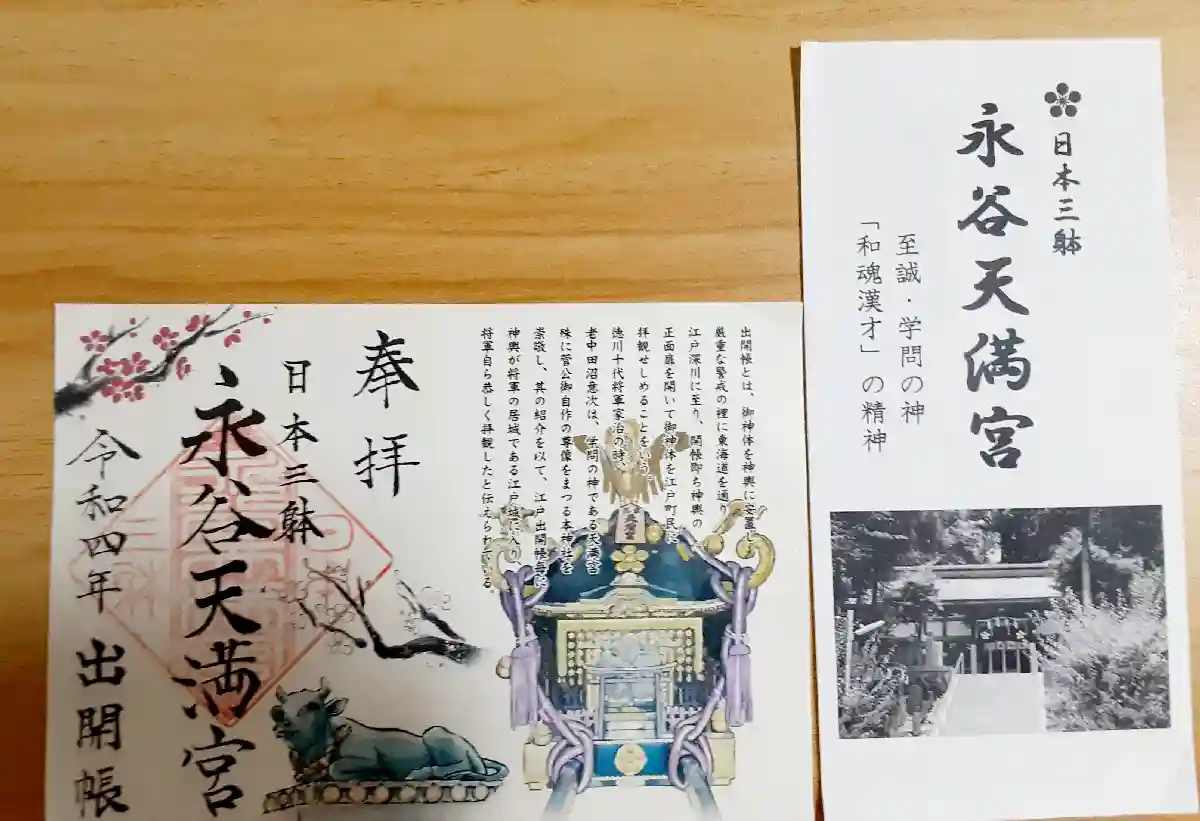 奉拝
日本三躰
永谷天満宮
令和四年 出開帳
出開帳とは、御神体を神輿に安置し
厳重な警戒の裡に東海道を通り
江戸深川に至り、開帳即ち神輿の
正面扉を開いて御神体を江戸町民に
拝観せしめることをいう。
徳川十代将軍家治の時、
老中田沼意次は、学問の神である天満宮
殊に菅公御自作の尊像をまつる本神社を
崇敬し、其の紹介を以て、江戸出開帳毎に
神輿が将軍の居城である江戸城に入り
将軍自ら恭しく拝観したと伝えられている
日本三躰
永谷天満宮
至誠・学問の神
「和魂漢才」の精神